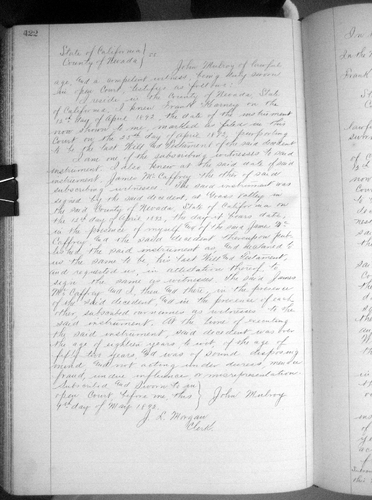 422
State of California }
County of Nevada } ss
John Mulroy of lawful
age, and a competent witness, being duly sworn
in open Court, testifies as follows:
I reside in the County of Nevada, State
of California. I knew Frank on the
day of April 1893, the date of the instrument
now shown to me, marked as filed in this
Court on the day of April 1893, purporting
to be the last Will and Testament of the said decedent
I am one of the subscribing witnesses to said
instrument. I also knew at the said date of said
instrument James McCaffrey the other of said
subscribing witnesses. The said instrument was
signed by the said decedent, at Grass Valley in
the said County of Nevada, State of California on
the day of April 1893, the day it bears date,
in the presence of myself and of the said James Mc
Caffrey and the said decedent thereupon pub-
lished the said instrument as and declared to
us the same to be, his last Will and Testament,
and requested us, in attestation thereof, to
sign the same as witnesses. The said James
McCaffrey and I, then and there, in the presence
of the said decedent, and in the presence of each
other, subscribed our names as witnesses to the
said instrument. At the time of executing
the said instrument, said decedent was over
the age of eighteen years, to wit, of the age of
fifty years, and was of sound, disposing
mind, and not acting under duress, menace
fraud, undue influence, or misrepresentation.
Subscribed and Sworn to in }
open Court, before me this } John Mulroy
day of May 1893. }
J. L. Morgan
Clerk